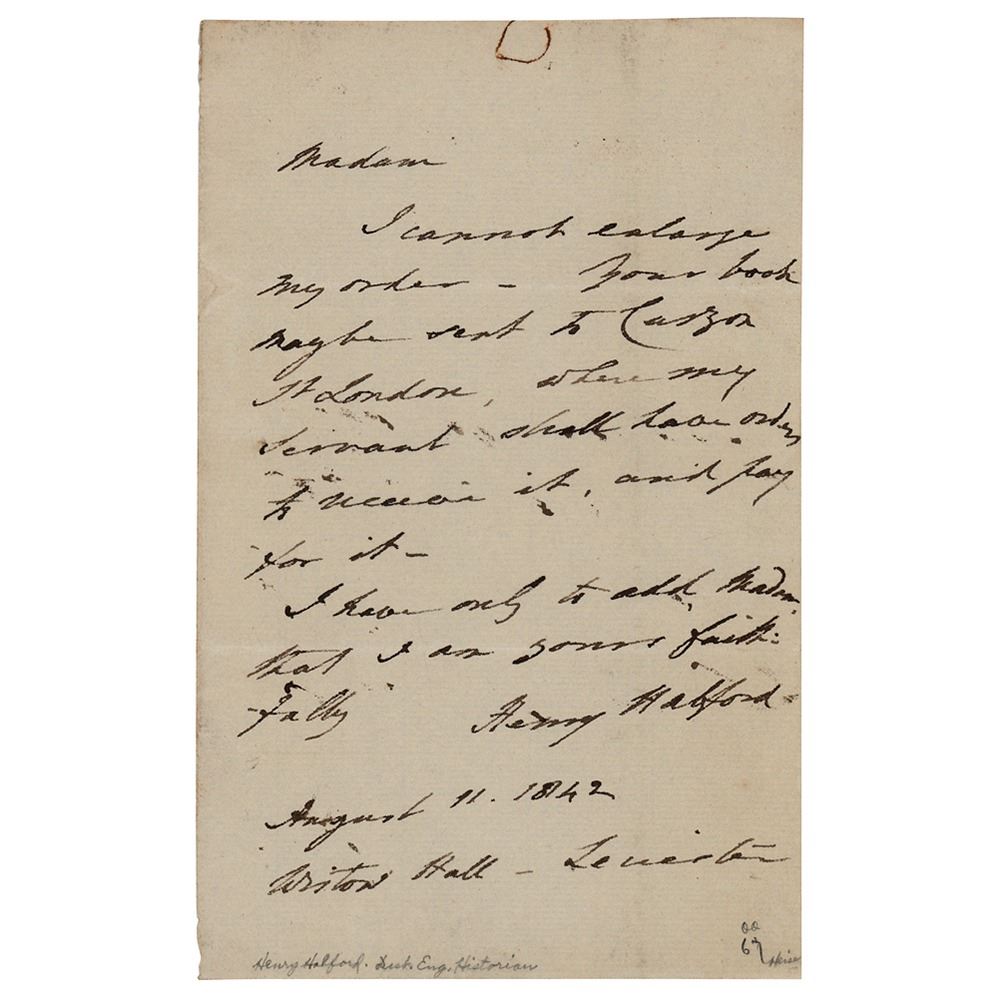 Madam
I cannot enlarge
my order - Your book
maybe sent to Curzon
St London, where my
Servant shall have orders
to receive it, and pay
for it -
I have only to add, Madam,
that I am yours faith:
-fully Henry Halford -
August 11. 1842
Wistow Hall - Leicester
67
Henry Halford. Eng. Historian